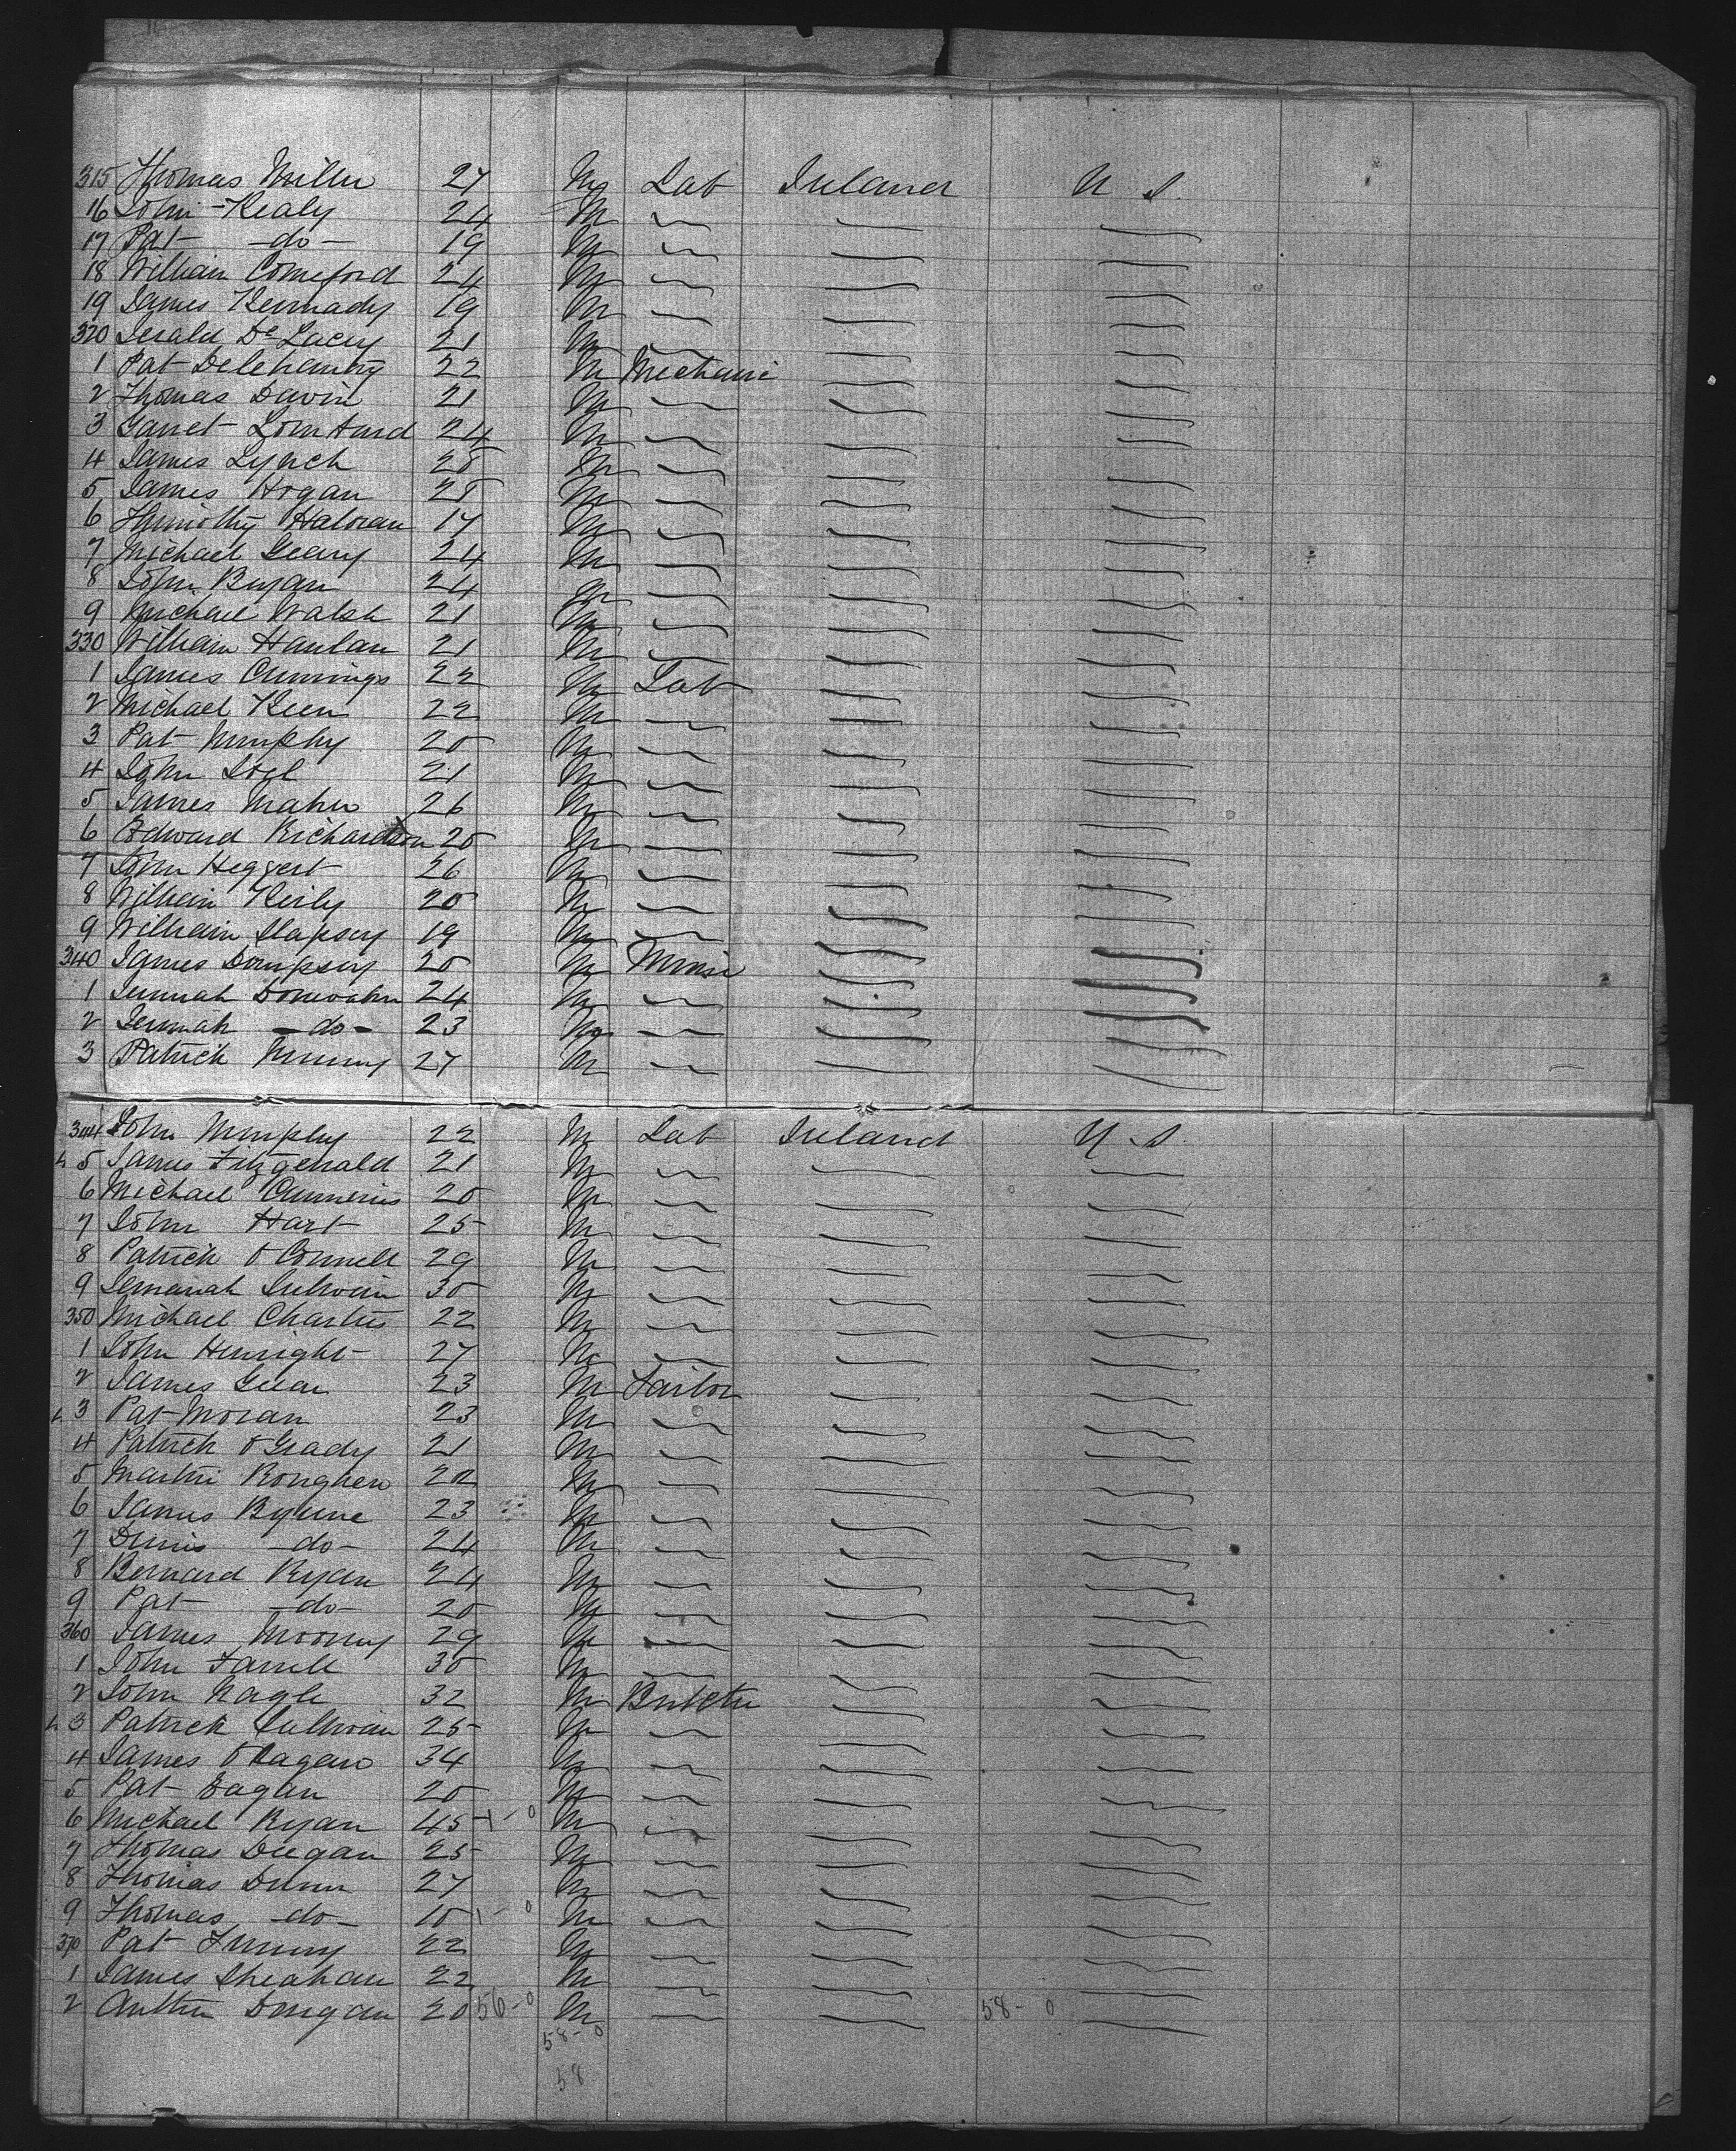 315 Thomas Miller 27 M Lab Ireland U S.
16 John Kealy 24 M
17 Pat -do- 19 M
18 William Comeford 24 M
19 James Kennady 19 M
320 Gerald De Lacey 21 M
1 Pat Delehanty 22 M Mechanic
2 Thomas Davin 21 M
3 Garret Lombard 24 M
4 James Lynch 28 M
5 James Hogan 28 M
6 Thimothy Haloran 17 M
7 Michael Geary 24 M
8 John Bryan 24 M
9 Michael Walsh 21 M
330 William Hanlan 21 M
1 James Cummings 22 M Lab
2 Michael Keen 22 M
3 Pat Murphy 20 M
4 John 21 M
5 James Maher 26 M
6 Edward Richardson 20 M
7 John Heggert 26 M
8 William Keily 20 M
9 William Slapsey 19 M
340 James Dempsey 20 M
1 Donovahn 24 M
2 -do- 23 M
3 Patrick 27 M
344 John Murphy 22 M Lab Ireland U. S.
5 James Fitzgerald 21 M
6 Michael 20 M
7 John Hart 25 M
8 Patrick O Connell 29 M
9 30 M
350 Michael Charters 22 M
1 John Henright 27 M
2 James 23 M Tailor
3 Pat Moran 23 M
4 Patrick O Grady 21 M
5 Martin Roughen 22 M
6 James Byrne 23 M
7 Dinnis -do- 24 M
8 Bernard Ryan 24 M
9 Pat -do- 20 M
360 James Mooney 29 M
1 John Farrell 30 M
2 John Nagle 32 M Butcher
3 Patrick Sullivan 25 M
4 James 34 M
5 Pat Eagan 20 M
6 Michael Ryan 45 1-0 M
7 Thomas Deegan 25 M
8 Thomas Dunn 27 M
9 Thomas -do- 10 1-0 M
370 Pat 22 M
1 James Sheahan 22 M
2 Dougan 20 56-0 M 58-0
58-0
58